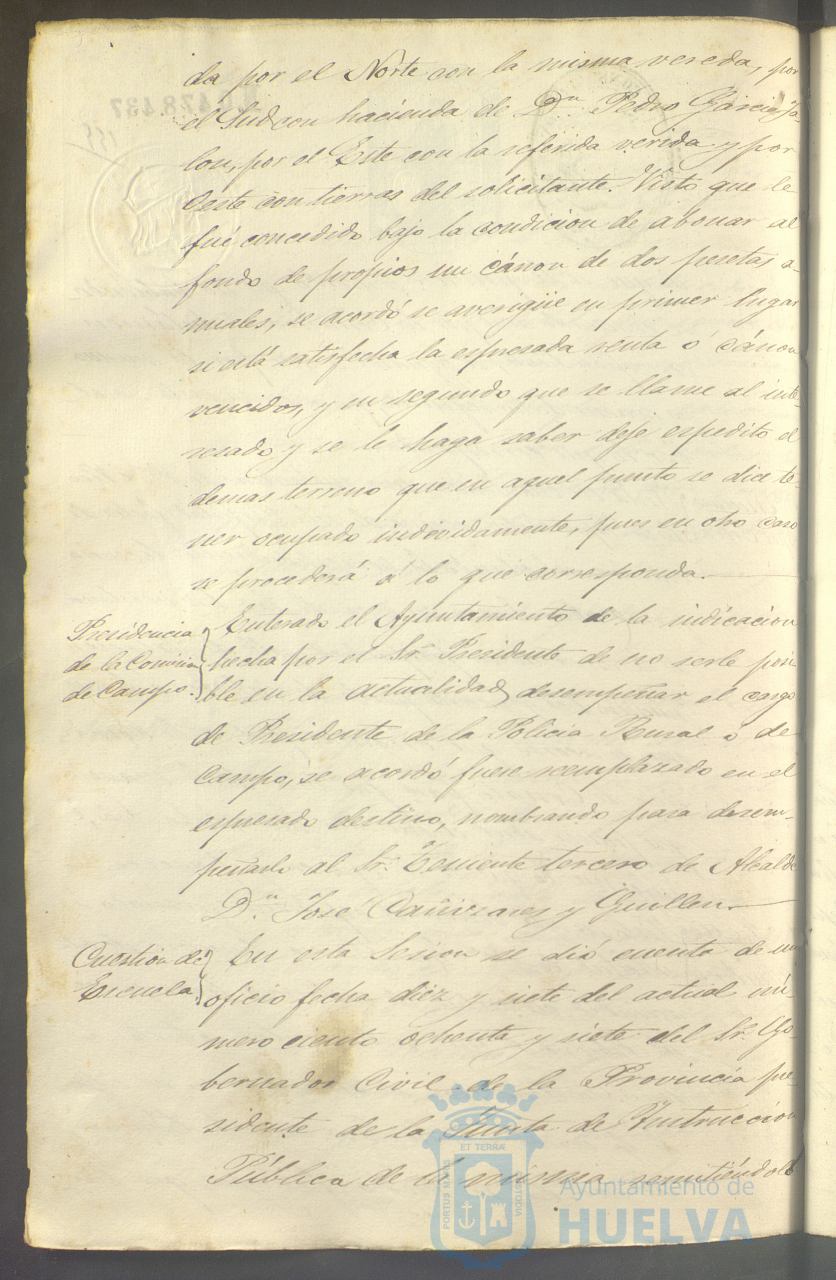 da por el Norte con la misma vereda, por
el Sud con hacienda de Dn. Pedro Garcia Ja-
lon, por el Este con la referida verida y por
Oeste con tierras del solicitante. Visto que le
fué concedido bajo la condicion de abonar al
fondo de propios un cánon de dos pesetas a-
nuales, se acordó se averigüe en primer lugar
si está satisfecha la espresada renta ó cánon
vencidos, y en segundo que se llame al inte-
resado y se le haga saber deje espedito el
demas terreno que en aquel punto se dice te-
ner ocupado indevidamente, pues en otro caso
se procederá á lo que corresponda.
Presidencia
de la Comision
de Campo.
Enterado el Ayuntamiento de la indicacion
hecha por el Sr. Presidente de no serle posi
ble en la actualidad desempeñar el cargo
de Presidente de la Policia Rural o de
Campo, se acordó fuese reemplazado en el
espresado destino, nombrando para desem-
peñarlo al Sr. Teniente tercero de Alcalde
Dn. José Cañizares y Guillen.
Cuestion de
Escuela
En esta Sesion se dió cuenta de un
oficio fecha diez y siete del actual nú-
mero ciento ochenta y siete del Sr. Go-
bernador Civil de la Provincia pre-
sidente de la Junta de Instruccion
Pública de la misma remitiéndole
ET TERRÆ
PORTUS MARIS
CUSTODIA
Ayuntamiento de
HUELVA